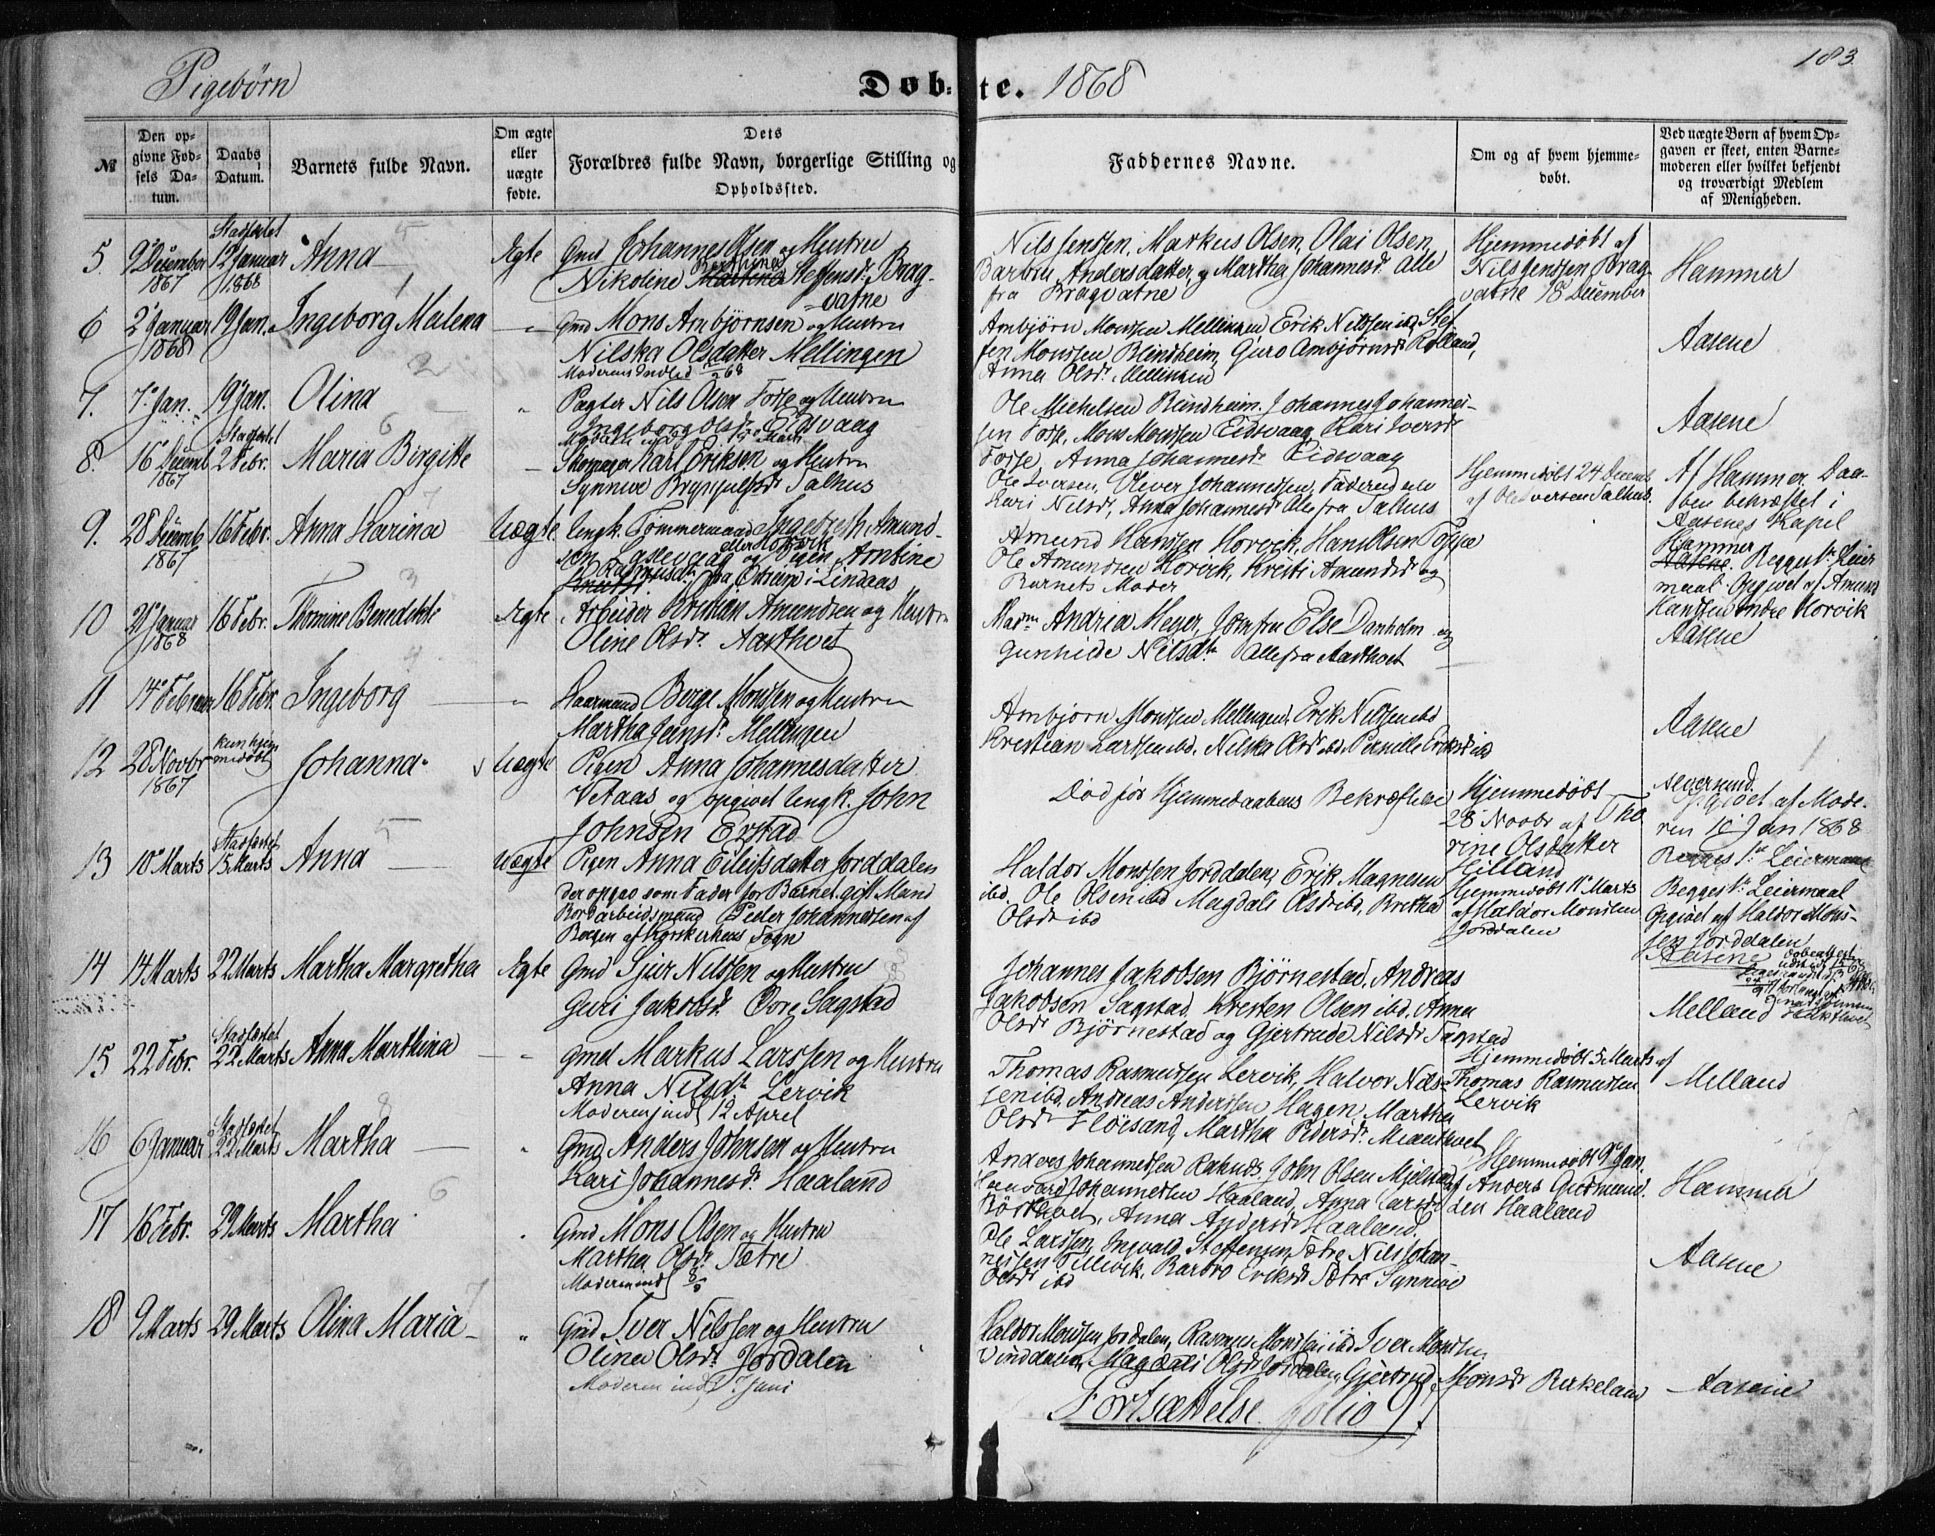 183
Pigebørn
Døb-te. 1868
№
Den op-
givne Fød-
sels Da-
tum.
Daabs
Datum.
Barnets fulde Navn.
Om ægte
eller
uægte
fødte.
Dets
Forældres fulde Navn, borgerlige Stilling og
Opholdssted.
Faddernes Navne.
Om og af hvem hjemme-
døbt.
Ved uægte Børn af hvem Op-
gaven er skeet, enten Barne-
moderen eller hvilket bekjendt
og troværdigt Medlem
af Menigheden.
5.
9 December
1867
Stadfæstet
12 Januar
1868
Anna
Ægte
Gmd Johannes Olsen og Hustru
Nikoline Steffensd. Brag-
vatne
Nils Jenssen, Markus Olsen, Olai Olsen,
Barbru Andersdatter, og Martha Johannesd. Alle
fra Bragvatne
Hjemmedøbt af
Nils Jenssen Brag-
vatne 18 December
Hammer
6
2 Januar
1868
19 Jan.
Ingeborg Malena
Gmd Mons Ambjørnsen og Hustru
Nilska Olsdatter Mellingen
Ambjørn Monssen Mellingen Erik Nilssen ibd, Stef
fen Monssen Blindheim, Guro Ambjørnsd. Rolland,
Anna Olsd. Mellingen
Aasene
7.
7 Jan.
19 Jan.
Olina
Pagter Nils Olsen Fosse og Hustru
Ingeborg Olsd. Eidsvaag
Ole Michelsen Blindheim. Johannes Johannes-
sen Fosse, Mons Monssen Eidsvaag, Kari Iversd.
Fosse, Anna Johannesd. Eidsvaag
Aasene
8.
16 Decemb
1867
Stadfæstet
2 Febr.
Maria Birgitte
Skomager Karl Eriksen og Hustru
Synneve Brynjulfsd. Salhus
Ole Iversen, Oliver Johannessen, Faderen
Kari Nilsd., Anna Johannesd. Alle fra Salhus
Hjemmedøbt 24 Decemb.
af Ole Iversen Salhus.
Af Hammer. Daa-
ben bekræftet i
Aasenes Kapel
9.
28 Decemb
1867
16 Febr.
Anna Karina
Uægte
Ungk. Tømmermand Ingebreth Amund-
sen eller Horvik og Pigen Arntine
fra Lindaas
Amund Hanssen Horvik, Hans Olsen Toppe
Ole Amundsen Horvik, Kristi Amundsd. og
Barnets Moder
Hammer
Begges 1te Leier
maal Opgivet af Amund
Hanssen indre Horvik
10
Januar
1868
16 Febr.
Thomine Benedikte
Ægte
Arbeider Kristian Amundsen og Hustru
Oline Olsd. Aastvet
Mad. Andrea Meyer, Jomfru Else Danholm og
Gunhilde Nilsd. Alle fra Aastvet
Aasene
11
14 Februar
16 Febr.
Ingeborg
Huusmand Berge Monssen og Hustru
Martha Jensd. Mellingen
Ambjørn Monssen Mellingen. Erik Nilssen ibd
Kristian Larssen ibd. Nilska Olsd. ibd. Pernille Eriksd. ibd
Aasene
12
28 Novbr
1867
kun hjem
medøbt
Johanna
Uægte
Pigen Anna Johannesdatter
Vetaas og opgivet Ungk. John
Johnsen Erstad
Død før Hjemmedaabens Bekræftelse
Hjemmedøbt
28 Novbr af Tho
rine Olsdatter
Hilland
Alversund.
Opgivet af Mode-
ren 10 Jan 1868
Begges 1te Leiermaal
13
10 Marts
Stadfæstet
15 Marts
Anna
Uægte
Pigen Anna Eilefsdatter Jorddalen
der opgav som Fader for Barnet gift Mand
Bordarbeidsmand Peder Johannessen af
Bergen af Korskirkens Sogn
Haldor Monssen Jorddalen, Erik Magnesen
ibd, Ole Olsen ibd Magdale Olsd. ibd, Bretha
Olsd. ibd
Hjemmedøbt 11 Marts
af Haldor Monssen
Jorddalen
Begges 1te Leiermaal
Opgivet af Haldor Mons-
sen Jorddalen
Aasene
14
14 Marts
22 Marts
Martha Margretha
Ægte
Gmd Sjur Nilssen og Hustru
Guri Jakobsd. Øvre Sagstad
Johannes Jakobsen Bjørnestad, Andreas
Jakobsen Sagstad. Kresten Olsen ibd. Anna
Olsd. Bjørnestad og Gjertrude Nilsd. Sagstad
Melland
15
22 Febr.
Stadfæstet
22 Marts
Anna Marthina
Gmd Markus Larssen og Hustru
Anna Nilsd. Lervik
Moderen ind 12 April
Thomas Rasmussen Lervik, Halvor Nils-
sen ibd. Andreas Anderssen Hagen, Martha
Olsd. Fløisand, Martha Pedersd. Mianthvet
Hjemmedøbt 5 Marts af
Thomas Rasmussen
Lervik
Melland
16
6 Januar
Stadfæstet
22 Marts
Martha
Gmd Anders Johnsen og Hustru
Kari Johannesd. Haaland
Anders Johannessen Raknes. John Olsen Mjelstad
Haavard Johannessen Haaland, Anna Larsd.
Anna Andersd. Haaland,
Hjemmedøbt 9 Jan.
af Anders Gudmund-
sen Haaland
Hammer
17
16 Febr.
29 Marts
Martha
Gmd Mons Olsen og Hustru
Martha Olsd. Sætre
Moderen ind
Ole Larssen, Ingvald Steffensen Sætre Nils Johan-
nessen Tellevik. Barbro Eriksd. Sætre Synneve
Olsd. ibd
Aasene
18
9 Marts
29 Marts
Olina Maria
Gmd Iver Nilssen og Hustru
Olina Olsd. Jordalen
Moderen ind 7 Juni
Haldor Monssen Jordalen, Rasmus Monssen ibd Iver Monssen
Magdali Olsd. Jordalen, Gjertrud Monsd. Birkeland
Aasene
Fortsættelse folio 9.